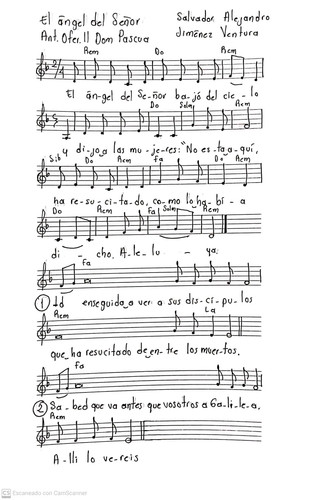 El ángel del Señor
Salvador Alejandro
Ant. Ofer. II Dom Pascua
Jiménez Ventura
Rem Do Rem
2/4
El án-gel del Se-ñor ba-jó del cie-lo
Do Solm Rem
y di-jo a las mu-je-res: "No es-ta a-quí,
Sib Do Rem Fa Do Rem
ha re-su-ci-ta-do, co-mo lo ha-bí-a
Do Rem Fa Solm Rem
di - cho. A-le-lu - ya.
Fa
① Id enseguida a ver a sus dis-cí-pu-los
Rem La
que ha resucitado de en-tre los muertos.
Fa
② Sa-bed que va antes que vosotros a Ga-li-le-a.
Rem
A-llí lo ve-reis
CS Escaneado con CamScanner